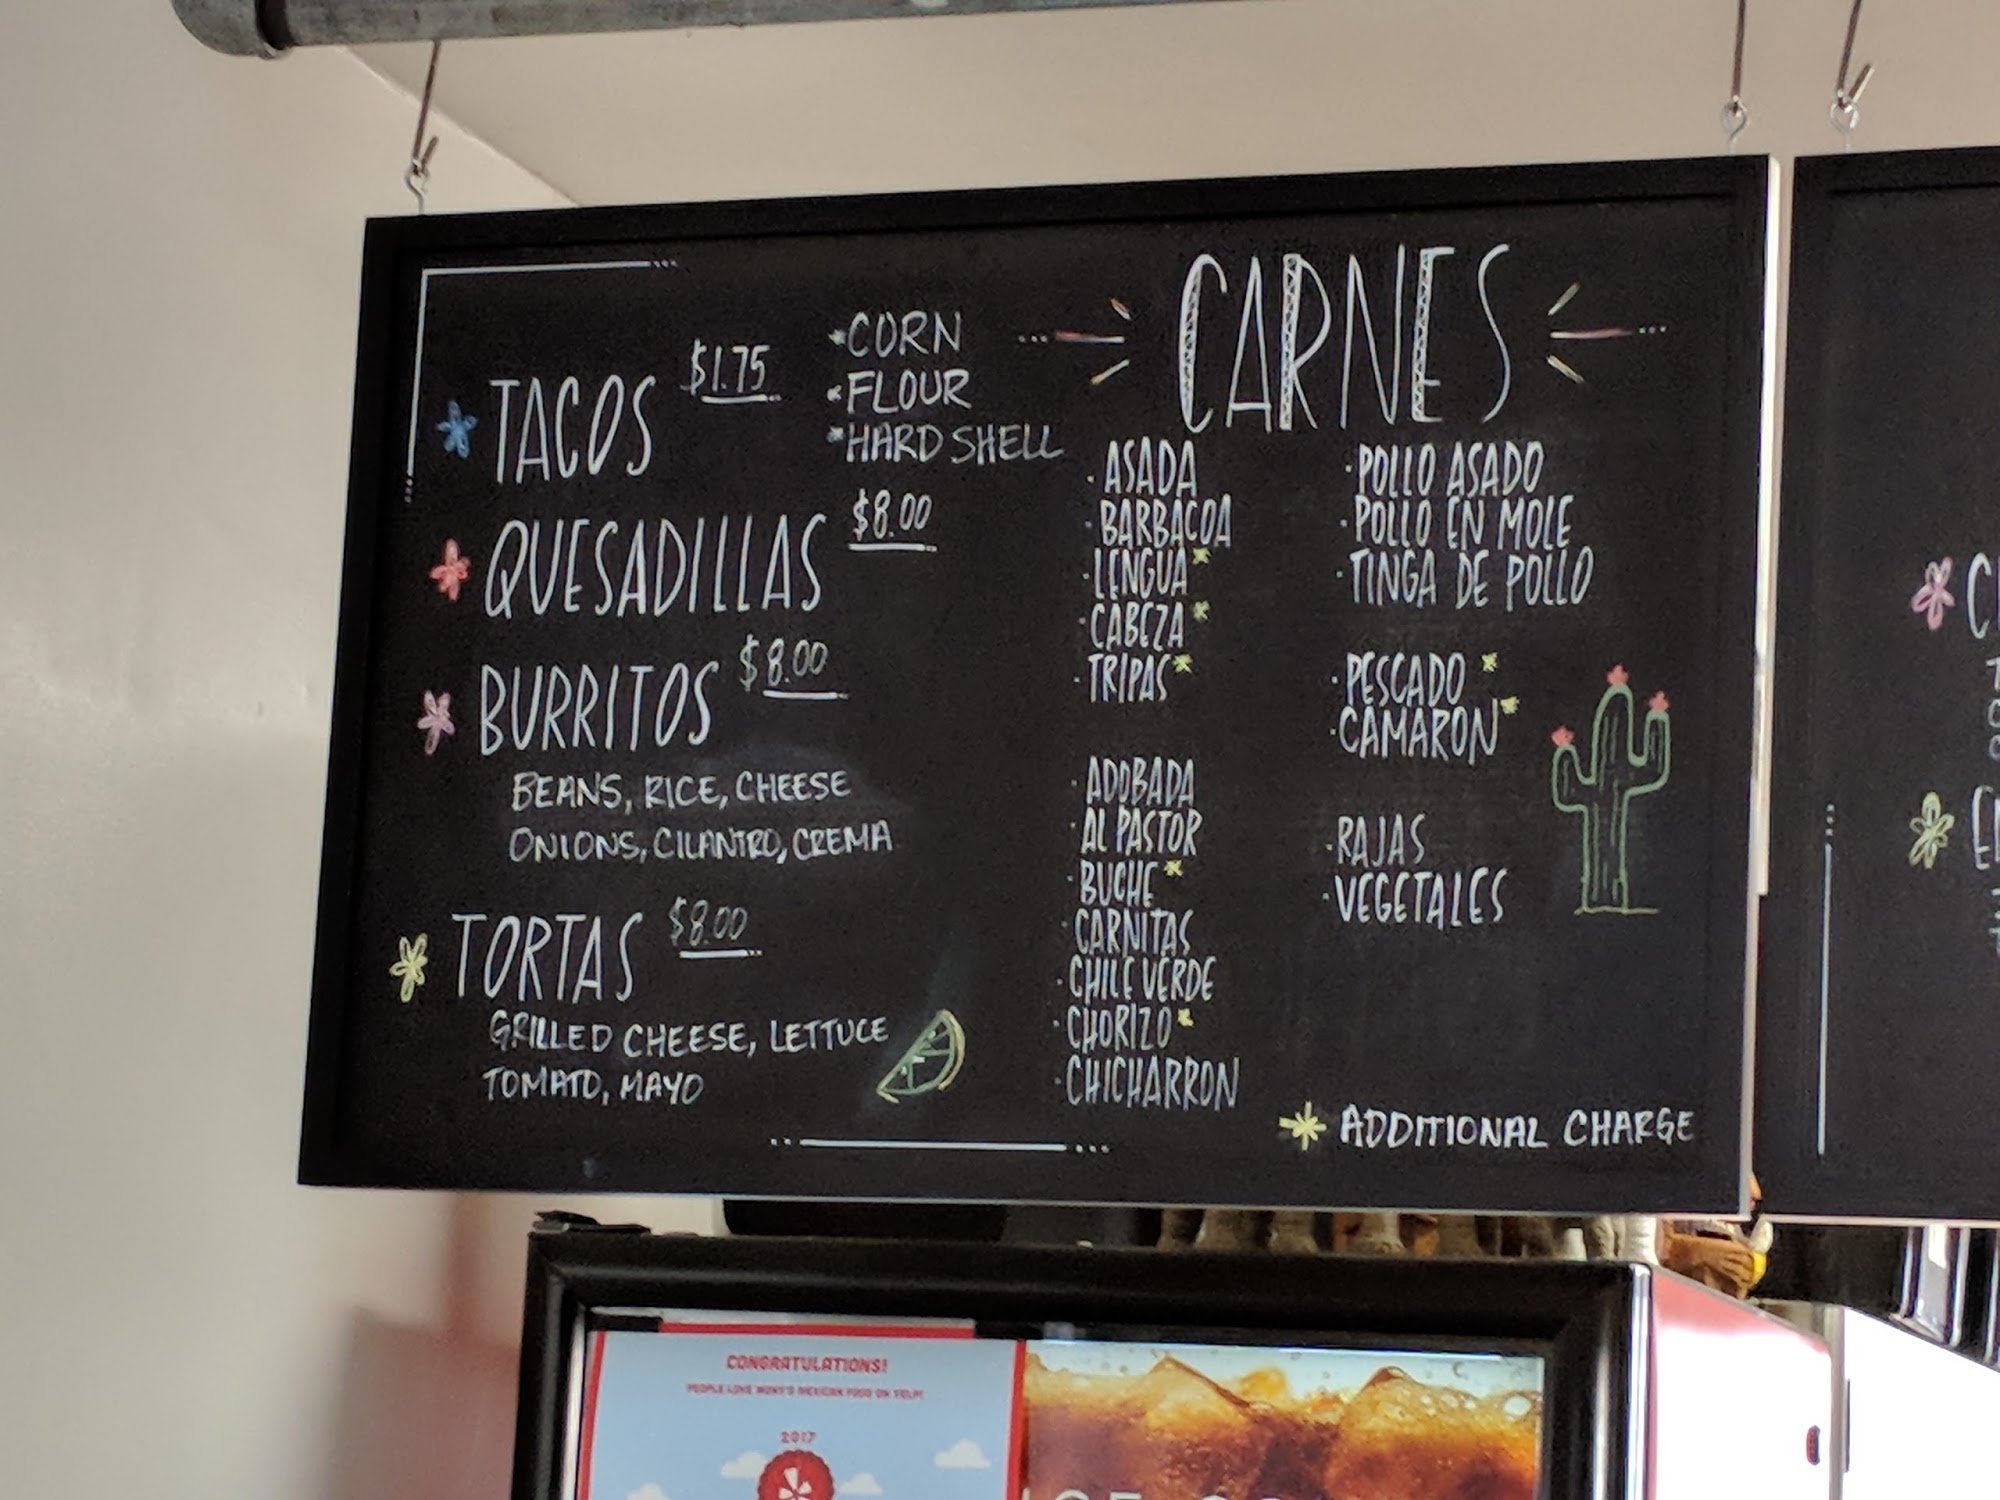 TACOS $1.75
*CORN
*FLOUR
*HARD SHELL
QUESADILLAS $8.00
BURRITOS $8.00
BEANS, RICE, CHEESE
ONIONS, CILANTRO, CREMA
TORTAS $8.00
GRILLED CHEESE, LETTUCE
TOMATO, MAYO
CARNES
· ASADA
· BARBACOA
· LENGUA*
· CABEZA*
· TRIPAS*
· ADOBADA
· AL PASTOR
· BUCHE*
· CARNITAS
· CHILE VERDE
· CHORIZO*
· CHICHARRON
· POLLO ASADO
· POLLO EN MOLE
· TINGA DE POLLO
· PESCADO*
· CAMARON*
· RAJAS
· VEGETALES
* ADDITIONAL CHARGE
CONGRATULATIONS!
PEOPLE LOVE MONY'S MEXICAN FOOD ON YELP!
2017